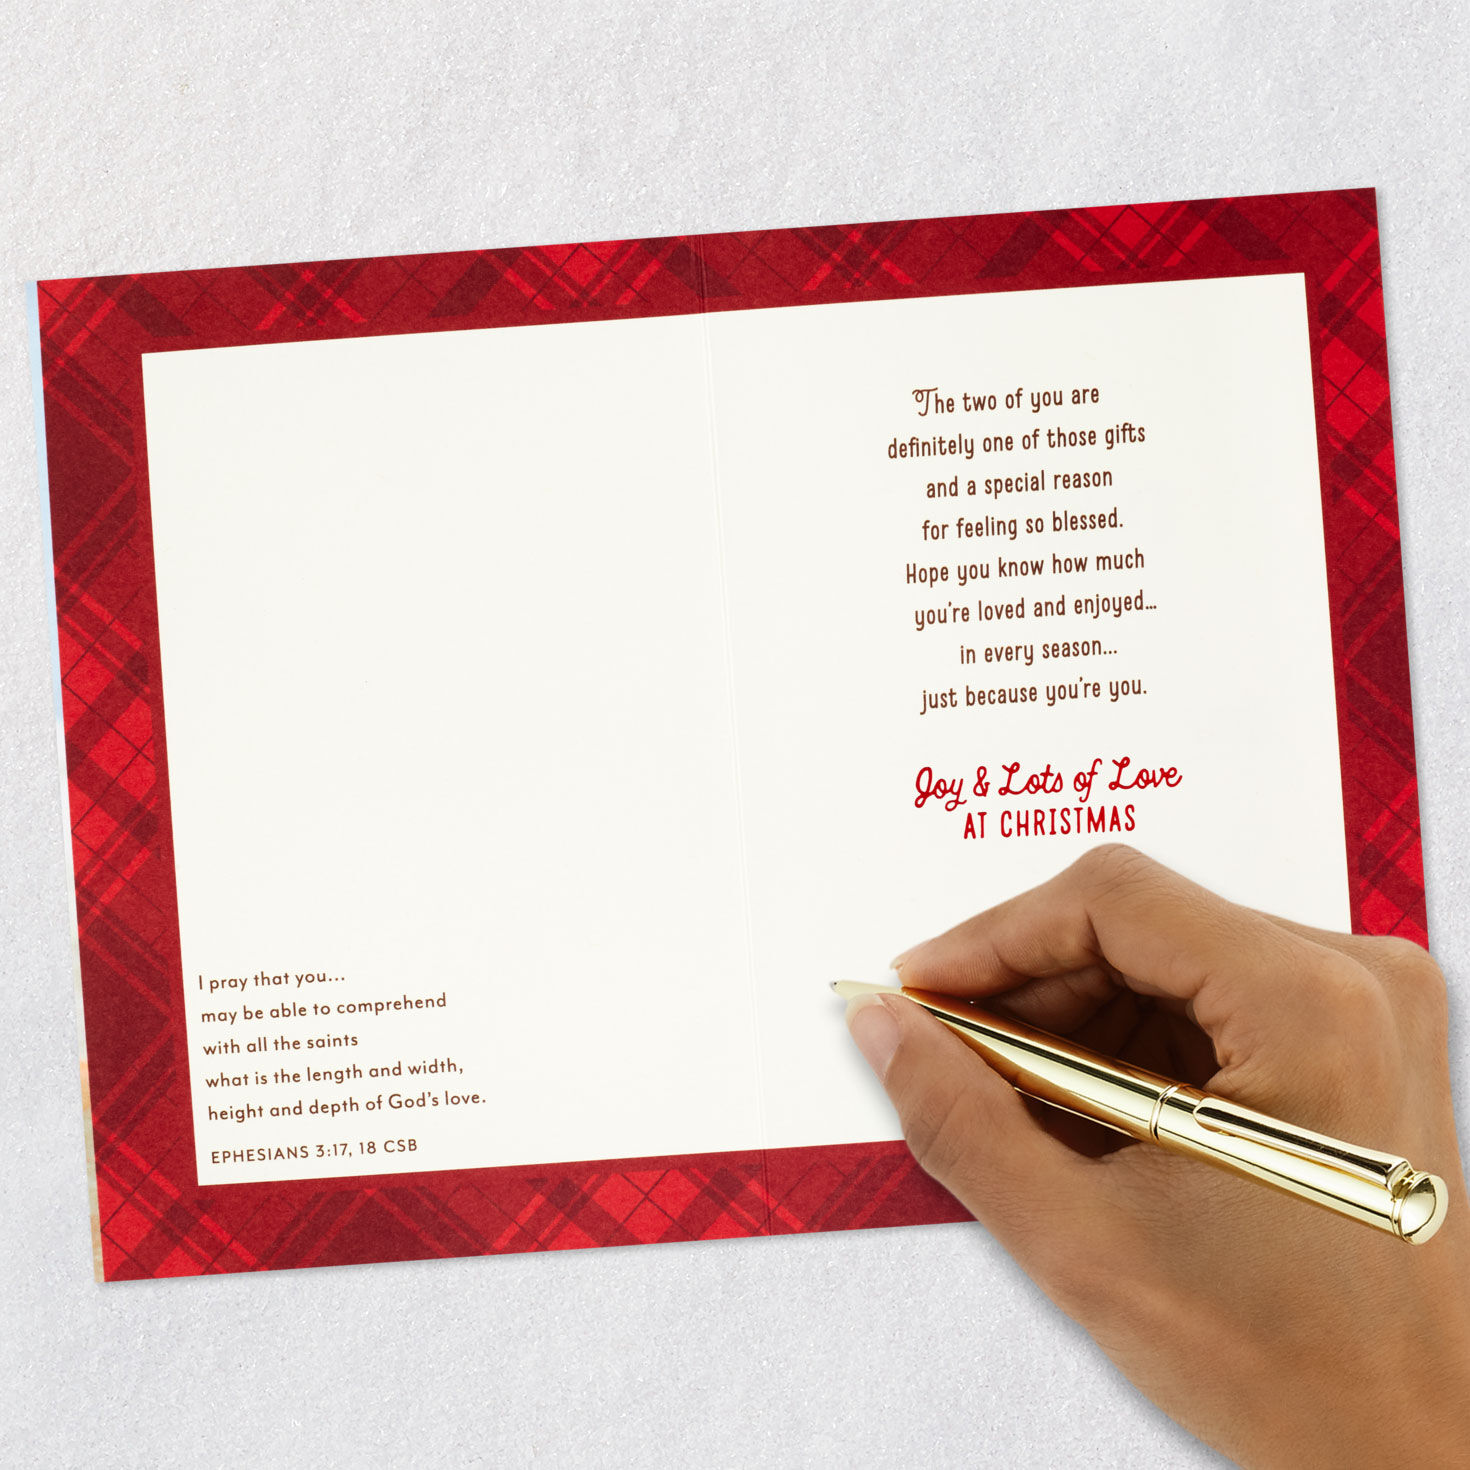 I pray that you...
may be able to comprehend
with all the saints
what is the length and width,
height and depth of God's love.
EPHESIANS 3:17, 18 CSB
The two of you are
definitely one of those gifts
and a special reason
for feeling so blessed.
Hope you know how much
you're loved and enjoyed...
in every season...
just because you're you.
Joy & Lots of Love
AT CHRISTMAS